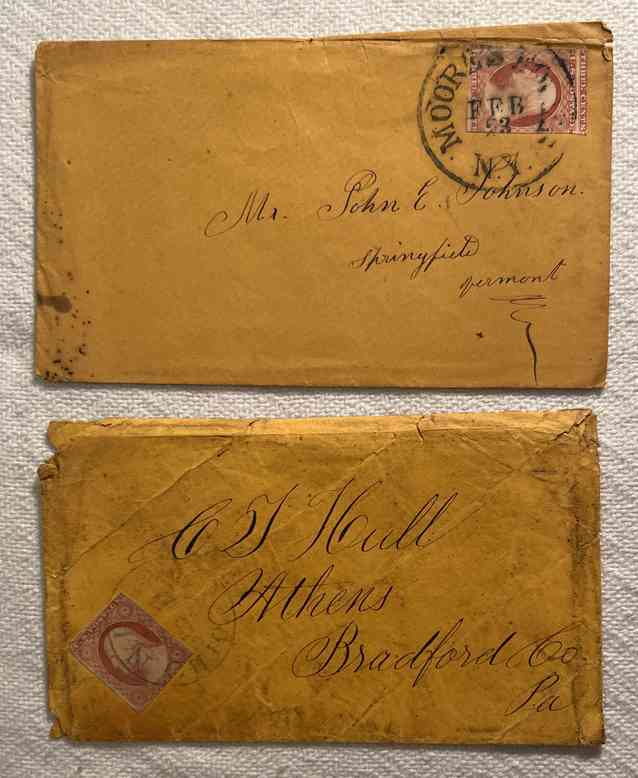 FEB
23
N.Y.
Mr. John E. Johnson.
Springfield
Vermont
C T Hull
Athens
Bradford Co
Pa